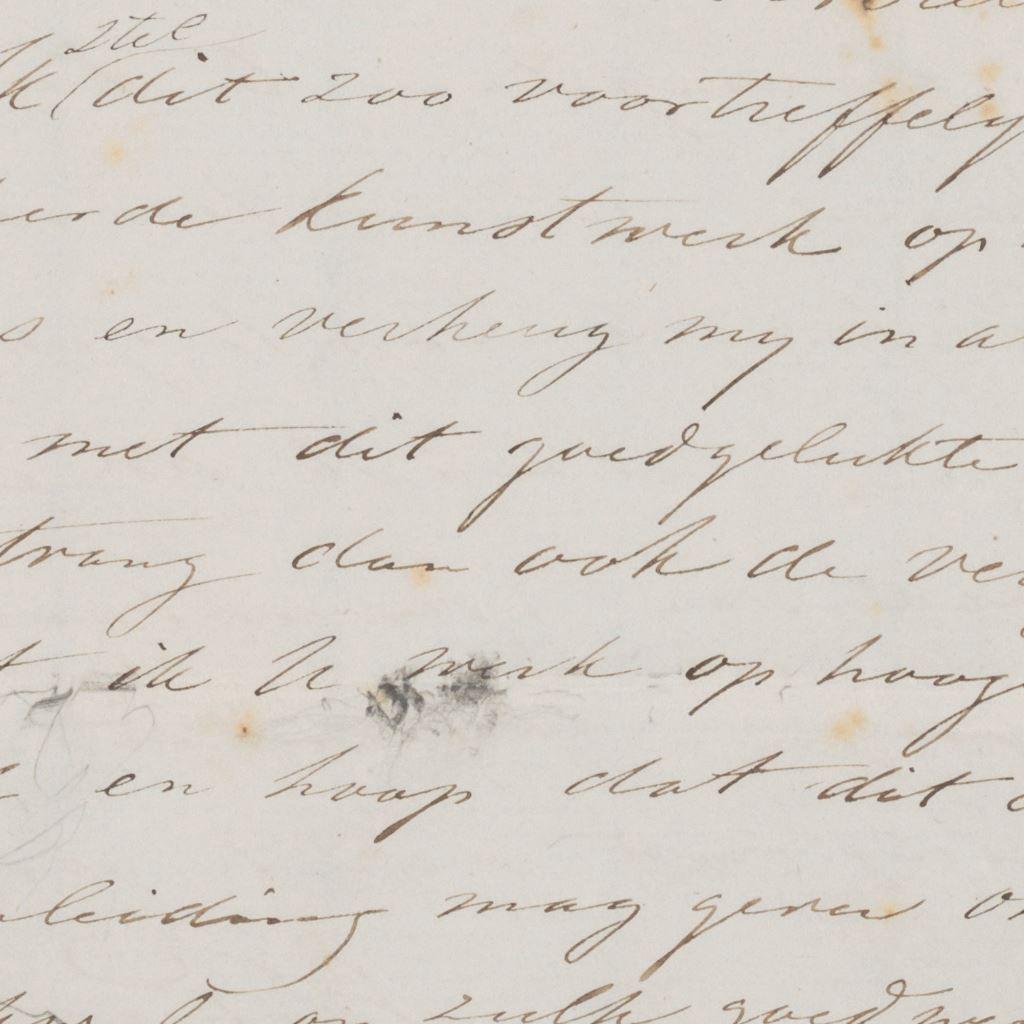 2tel
k dit zoo voortreffely
erde kunstwerk op
s en verheug my in a
met dit goedgelukte
trang dan ook de ver
t ik U werk op hoog
en hoop dat dit
leiding mag geven o
zulk goed